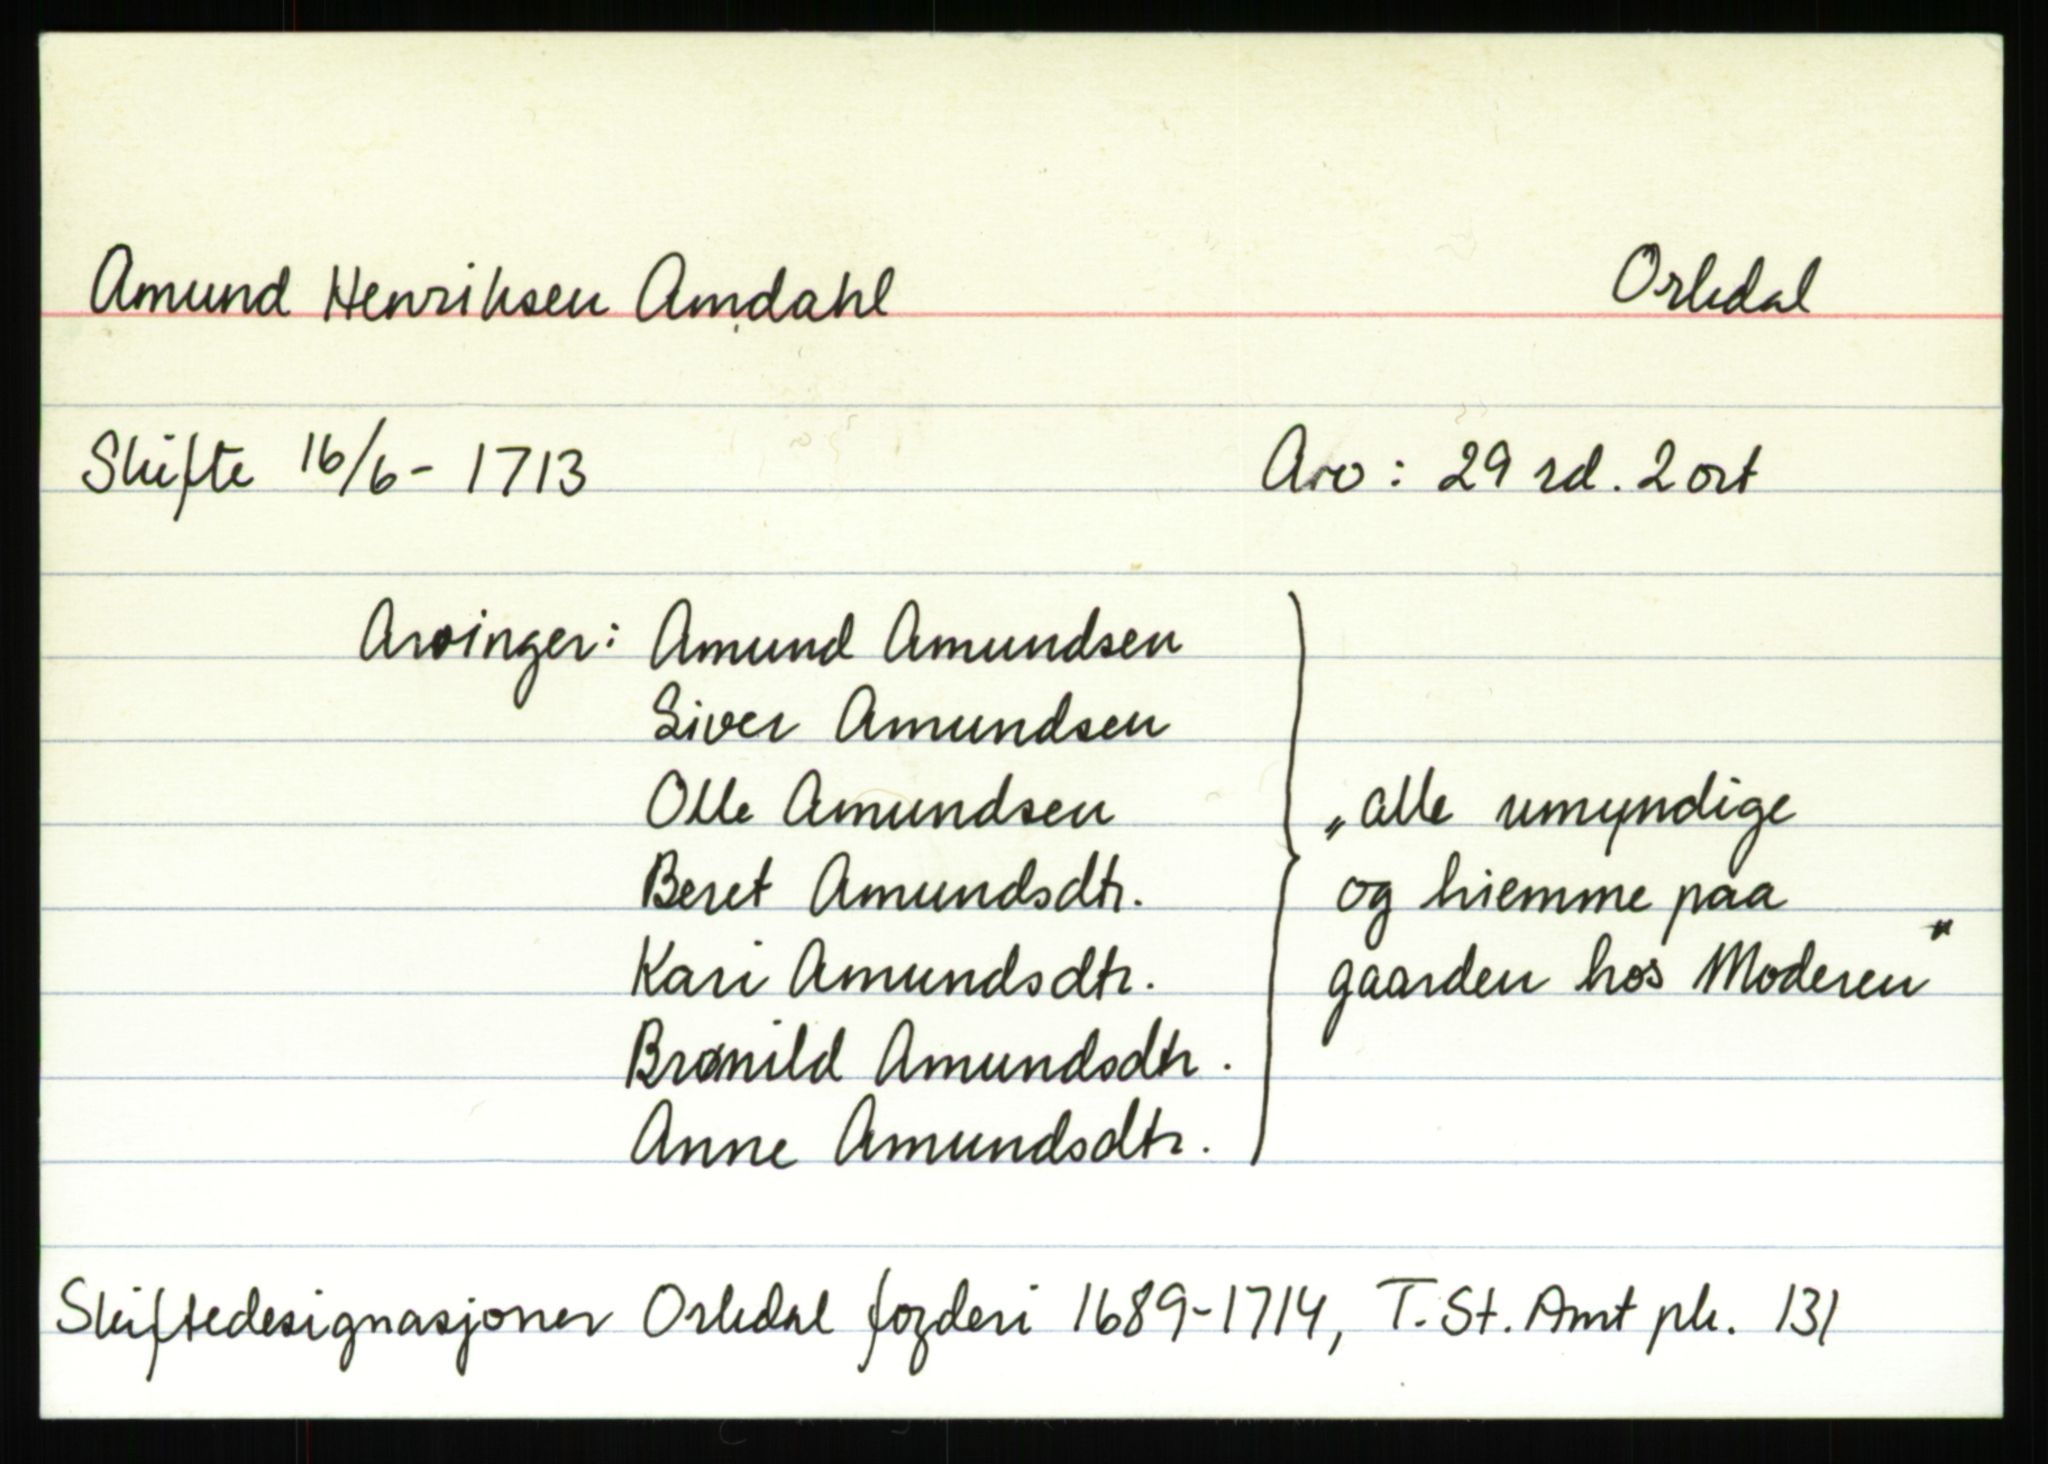 Amund Henriksen Amdahl Orkdal
Skifte 16/6 - 1713 Arv : 29 rd. 2 ort
Arvinger : Amund Amundsen
Siver Amundsen
Olle Amundsen „alle umyndige
Beret Amundsdtr. og hiemme paa
Kari Amundsdtr. gaarden hos Moderen"
Brønild Amundsdtr.
Anne Amundsdtr.
Skiftedesignasjoner Orkdal fogderi 1689-1714, T. St. Amt pk. 131